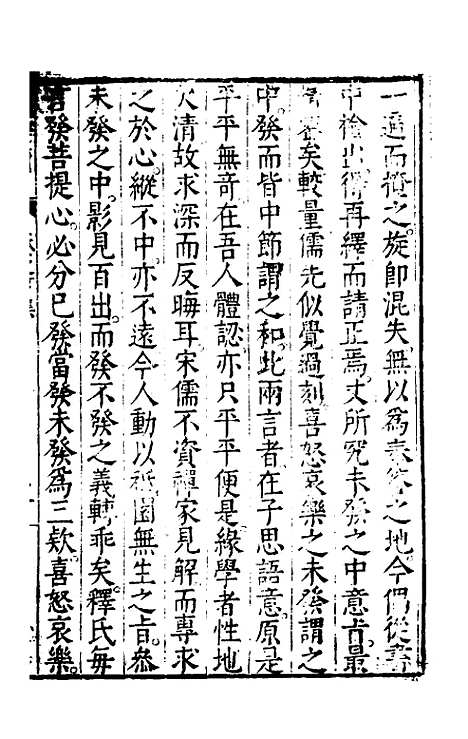 一遍而攬之旋卽混失無以爲奉答之地今偶從書
中檢出得再繹而請正焉丈所究未發之中意旨最
密矣較量儒先似覺過刻喜怒哀樂之未發謂之
中發而皆中節謂之和此兩言者在子思語意原是
平平無奇在吾人體認亦只平平便是緣學者性地
欠清故求深而反晦耳宋儒不資禪家見解而專求
之於心縱不中亦不遠今人動以祇園無生之旨叅
未發之中影見百出而發不發之義轉乖矣釋氏每
言發菩提心必分已發當發未發爲三欵喜怒哀樂